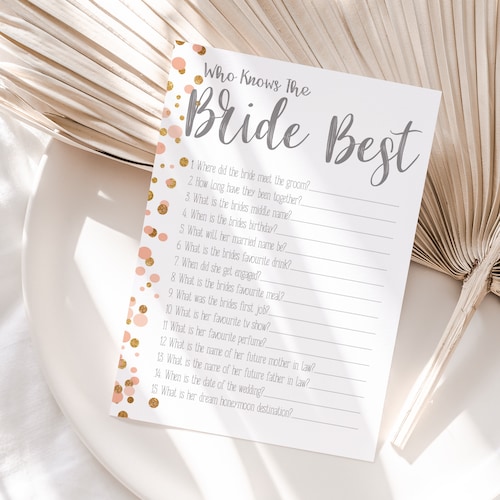 Who Knows The
Bride Best
1 Where did the bride meet the groom?
2 How long have they been together?
3 What is the brides middle name?
4 When is the brides birthday?
5 What will her married name be?
6 What is the brides favourite drink?
7 When did she get engaged?
8 What is the brides favourite meal?
9 What was the brides first job?
10 What is her favourite tv show?
11 What is her favourite perfume?
12 What is the name of her future mother in law?
13 What is the name of her future father in law?
14. When is the date of the wedding?
15 What is her dream honeymoon destination?